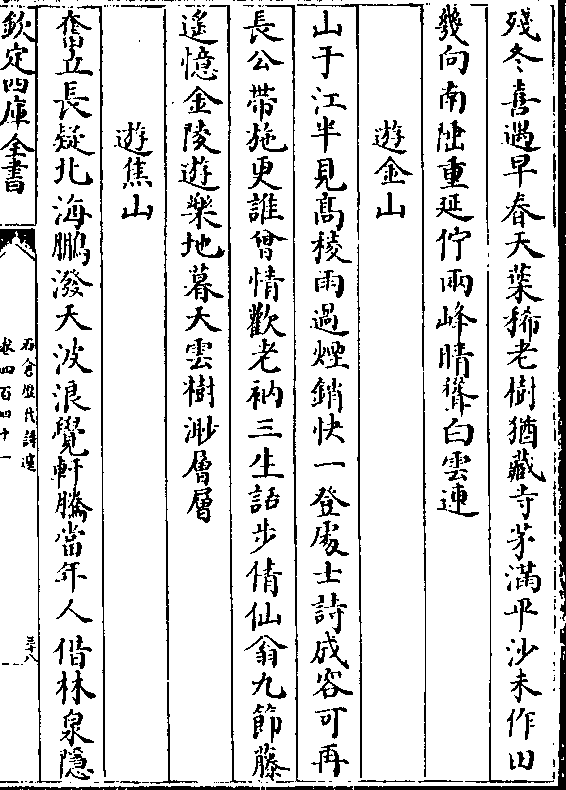 殘冬喜遇早春天葉稀老樹猶藏寺茅滿平沙未作田
幾向南陲重延佇兩峰晴聳白雲連
遊金山
山于江半見高稜雨過煙銷快一登處士詩成容可再
長公帶施更誰曾情歡老衲三生話步倩仙翁九節藤
遙憶金陵遊樂地暮天雲樹渺層層
遊焦山
奮立長疑北海鵬潑天波浪覺軒騰當年人借林泉隱
欽定四庫全書
石倉歴代詩選
卷四百四十一
三十八